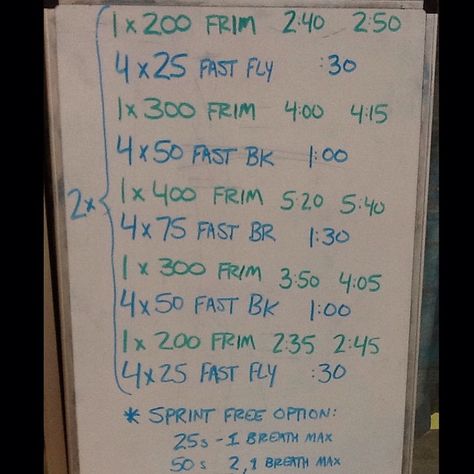 1 x 200 FRIM 2:40 2:50
4 x 25 FAST FLY :30
1 x 300 FRIM 4:00 4:15
4 x 50 FAST BK 1:00
2x
1 x 400 FRIM 5:20 5:40
4 x 75 FAST BR 1:30
1 x 300 FRIM 3:50 4:05
4 x 50 FAST BK 1:00
1 x 200 FRIM 2:35 2:45
4 x 25 FAST FLY :30
* SPRINT FREE OPTION:
25s - 1 BREATH MAX
50s 2, 1 BREATH MAX